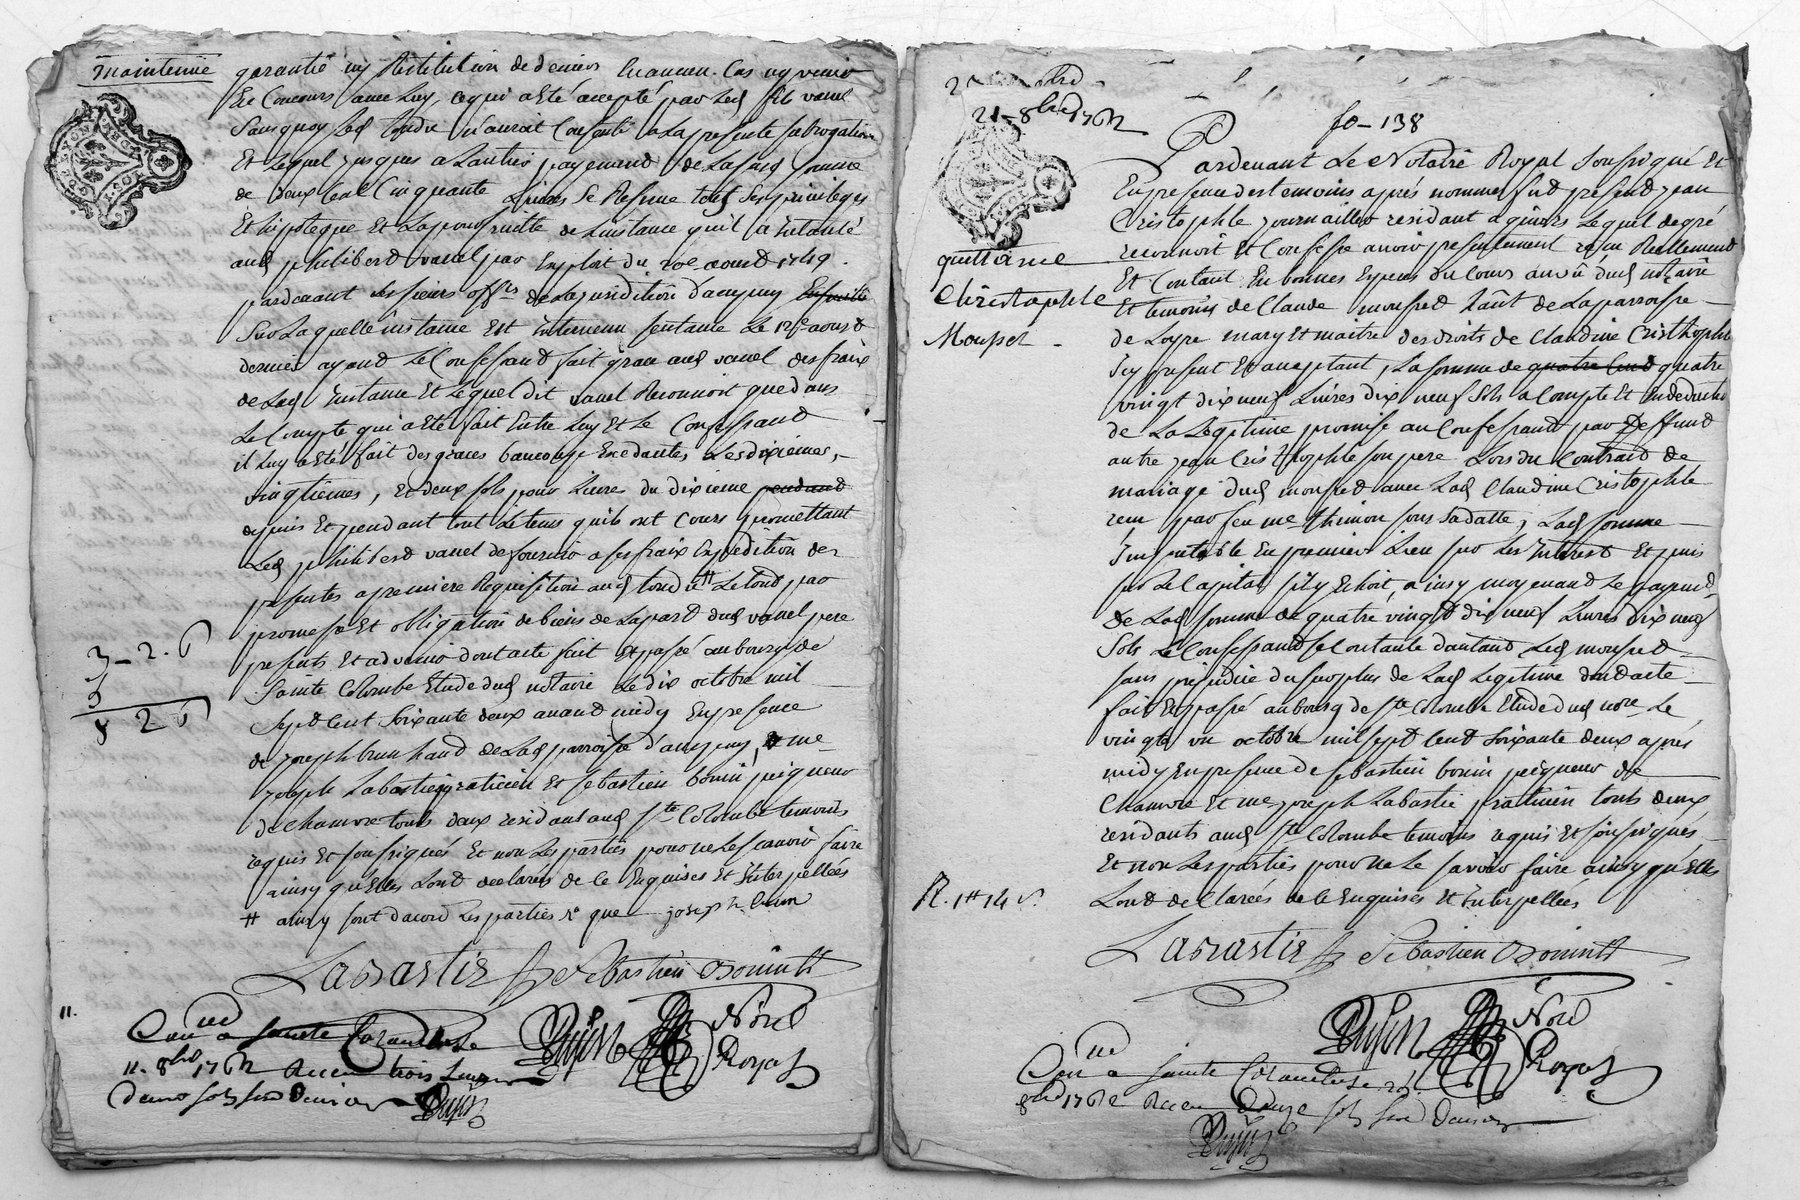 maintenüe garantie ny Restitution de deniers
Et Concours avec Luy, ce qui a Eté accepté par Led fils vanel
Sans quoy Led n'auroit Consenti a La presente subrogation
Et Lequel jusques a payement de La somme
de deux Cent Cinquante Livres se Reserve tous ses privileges
Et hipoteque Et La poursuitte de Linstance qu'il a intanté
aud philibert vanel par Exploit du aoust 1749.
pardevant Les sieurs de La juridiction
Sur Laquelle instance Est intervenu sentance Le aoust
dernier ayand Le Confessand fait grace aud vanel des fraix
de Lad instance Et Lequel dit vanel Reconnoit que dans
Le Compte qui a Eté fait Entre Luy Et Le Confessand
il Luy a Eté fait des graces Les dixiemes,
vingtiemes, Et deux sols pour Livres du dixieme pendand
depuis Et pendant tout Le tems qu'ils ont Cours promettant
Led philiberd vanel de fournir a ses fraix Expedition des
presentes a premiere Requisition aud # Le tout par
promesse Et obligation de biens de La part dud vanel pere
presents Et advenir dont acte fait Et passé au bourg de
3 - 2. 6
5
8 2 6
Sainte Colombe Etude dud notaire Le dix octobre mil
Sept Cent Soixante deux avand midy En presence
de joseph brun de Lad parroisse me
joseph Labastie praticien Et sebastien bonin peigneur
de chamvre touts deux residant aud Ste Colombe temoins
requis Et soussignés Et non Les parties pour ne Le scavoir faire
ainsy qu'Elles Lont declarés de Ce Enquises Et interpellées
# ainsy sont dacord Les parties joseph brun
Labastie Sebastien Boninth
11.
Con a Sainte Colombe Noire
11. 8bre 1762 Receu trois Livres Royal
deux sols six deniers
21 8bre 1762
fo - 138
Pardevant Le Notaire Royal Soussigné Et
En presence des temoins aprés nommés fut present jean
Cristophle journaillier residant Lequel de gré
quittance
reconnoit Et Confesse avoir presentement reçu Reellement
Christophle
Et Contant En bonnes Especes du Cours au vû dud notaire
Et temoins de Claude mouset de La parroisse
Mouset -
de Loyre mary Et maitre des droits de Claudine Cristhophle
icy present Et acceptant, La somme de quatre Cent quatre
vingt dix neuf Livres dix neuf Sols a Compte Et En deduction
de La Legitime promise au Confessand par Deffund
autre jean Cristhophle son pere Lors du Contract de
mariage dud mouset avec Lad Claudine Cristophle
recu par feu me Thimon sous sa datte, Lad somme
imputable En premier Lieu sur Les interest Et puis
sur Le Capital s'il y Echoit, ainsy moyenand Le payemt
de Lad somme de quatre vingt dix neuf Livres dix neuf
Sols Le Confessand se Contante d'autant Led mouset
sans prejudice du surplus de Lad Legitime dont acte
fait Et passé au bourg de Ste Colombe Etude dud nore Le
vingt un octobre mil sept Cent Soixante deux apres
midy En presence de sebastien bonin peigneur de
Chamvre Et me joseph Labastie praticien touts deux
residants aud Ste Colombe temoins requis Et soussignés
Et non Les parties pour ne Le savoir faire ainsy qu'Elles
R. 1# 14 s.
Lont declarées de Ce Enquises Et interpellées
Labastie Sebastien Boninth
Noire
Royal
Con a Sainte Colombe
8bre 1762 Receu Douze sols six deniers